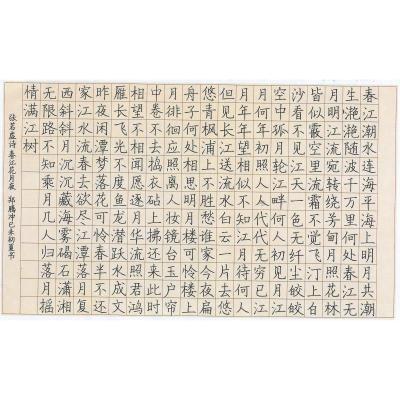 春江潮水连海平海上明月共潮
生滟滟随波千万里何处春江无
月明江流宛转绕芳甸月照花林
皆似霰空里流霜不觉飞汀上白
沙看不见江天一色无纤尘皎皎
空中孤月轮江畔何人初见月江
月何年初照人人代代无穷已江
月年年只相似不知江月待何人
但见长江送流水白云一片去悠
悠青枫浦上不胜愁谁家今夜扁
舟子何处相思明月楼可怜楼上
月徘徊应照离人妆镜台玉户帘
中卷不去捣衣砧上拂还来此时
相望不相闻愿逐月华流照君鸿
雁长飞光不度鱼龙潜跃水成文
昨夜闲潭梦落花可怜春半不还
家江水流春去欲尽江潭落月复
西斜斜月沉沉藏海雾碣石潇湘
无限路不知乘月几人归落月摇
情满江树
张若虚诗春江花月夜 郑鹏冲 初夏书